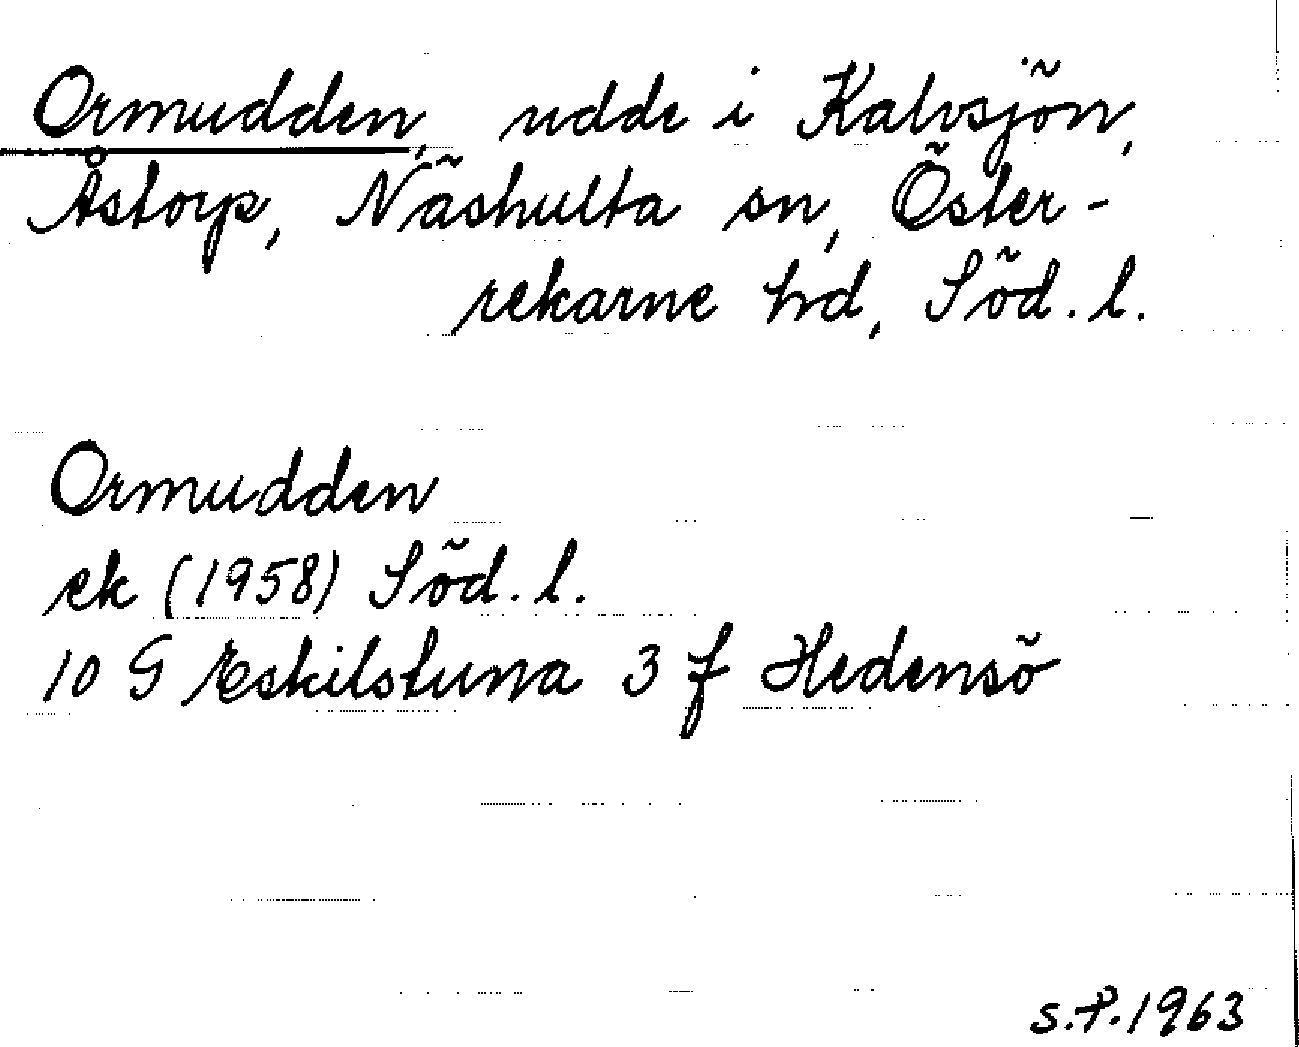 Ormudden, udde i Kalvsjön,
Åstorp, Näshulta sn, Öster-
rekarne hd, Söd. l.
Ormudden
ek (1958) Söd. l.
10 G Eskilstuna 3 f Hedensö
S.P. 1963